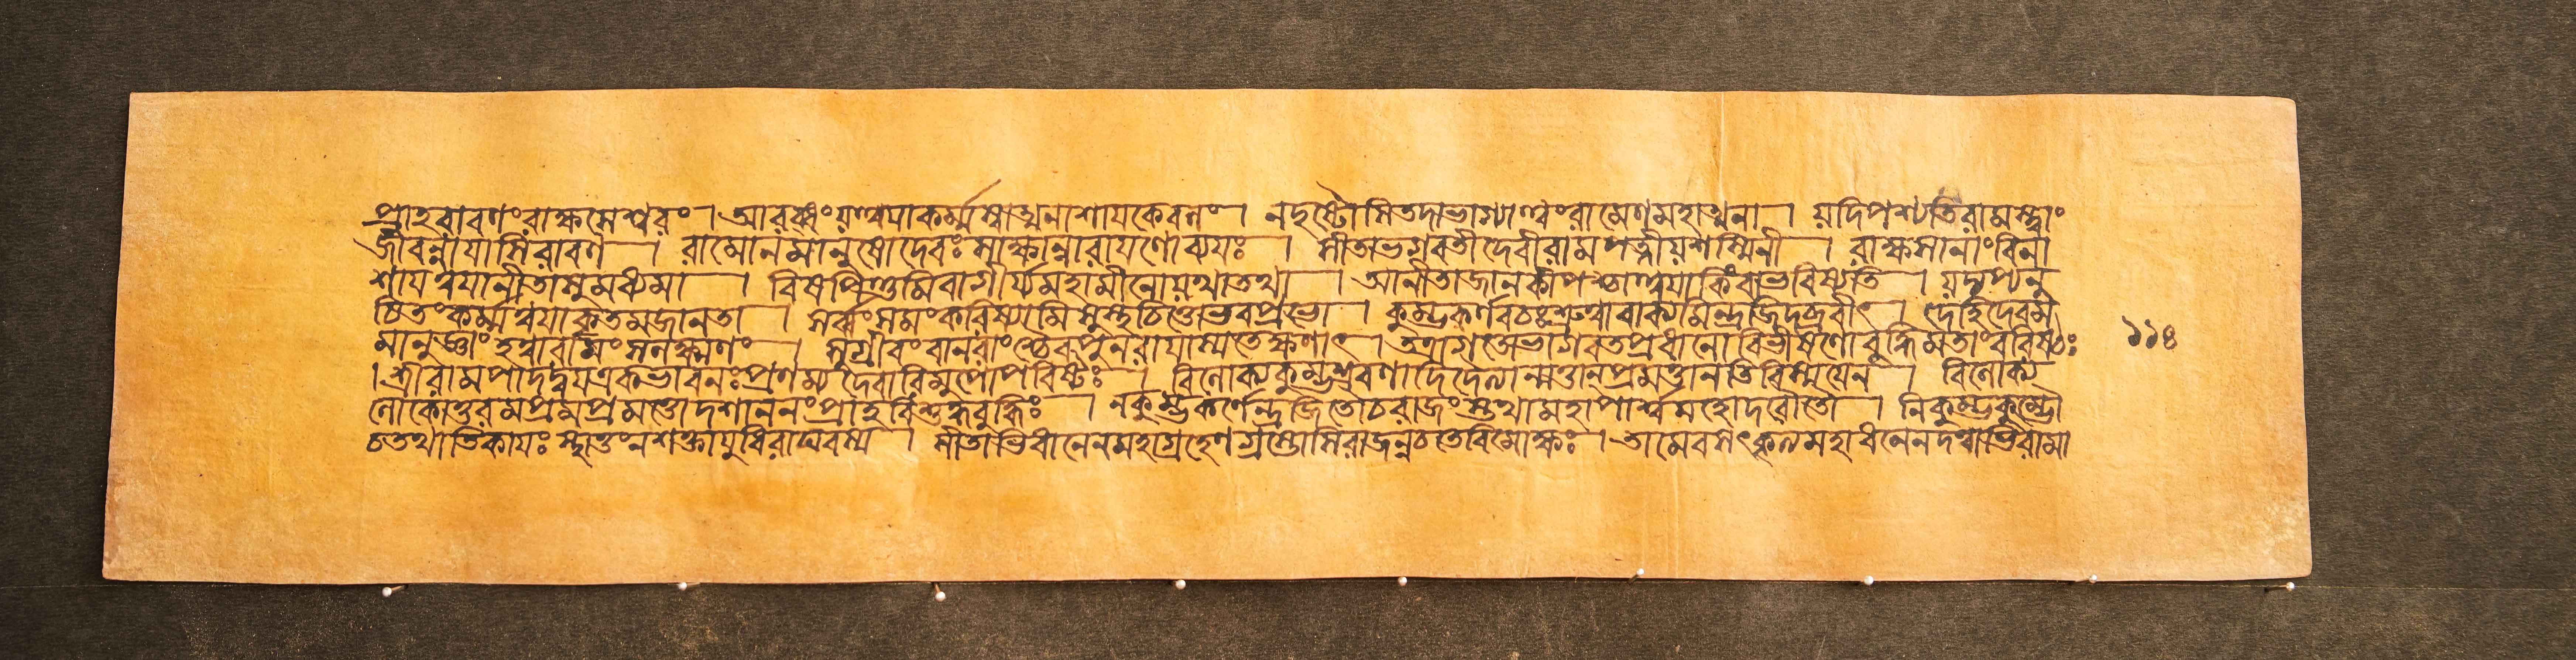 প্রাহরাবণংরাক্ষসেশ্বরং । আরব্ধংযত্ত্বযাকর্ম্মস্বাত্মনাশাযকেবলং । নদৃষ্টোসিতদাভাগ্যাত্ত্বংরামেণমহাত্মনা । যদিপশ্যতিরামস্ত্বাং
জীবন্নাযাসিরাবণ । রামোনমানুষোদেবঃসাক্ষান্নারাযণোব্যযঃ । সীতাভগবতীদেবীরামপত্নীযশস্বিনী । রাক্ষসানাংবিনা
শাযত্বযানীতাসুমধ্যমা । বিষপিণ্ডমিবাগীর্য্যমহামীনোযথাতথা । আনীতাজানকীপশ্চাত্ত্বযাকিংবাভবিষ্যতি । যদ্যপ্যনু
চিতংকর্ম্মত্বযাকৃতমজানতা । সর্ব্বংসমংকরিষ্যামিসুস্থচিত্তোভবপ্রভো । কুম্ভকর্ণবচঃশ্রুত্বাবাক্যমিন্দ্রজিদব্রবীৎ । দেহিদেবম
মানুজ্ঞাংহত্বারামংসলক্ষ্মণং । সুগ্রীবংবানরাংশ্চৈবপুনরাযাম্যতেক্ষণাৎ । তত্রাগতোভাগবতপ্রধানোবিভীষণোবুদ্ধিমতাংবরিষ্ঠঃ ১১৪
। শ্রীরামপাদদ্বযএকভাবনঃপ্রণম্য দেবারিমুপোপবিষ্টঃ । বিলোক্যকুম্ভশ্রবণাদিদৈত্যান্মত্তান্প্রমত্তানতিবিস্মযেন । বিলোক্য
লোকোত্তরমপ্রমপ্রমত্তোদশাননংপ্রাহবিশুদ্ধবুদ্ধিঃ । নকুম্ভকর্ণেন্দ্রজিতৌচরাজংস্তথামহাপার্শ্বমহোদরৌতৌ । নিকুম্ভকুম্ভৌ
চতথাতিকাযঃ স্থাতুংনশক্তাযুধিরাঘবস্য । সীতাভিধানেনমহাগ্রহেণগ্রস্তোসিরাজন্নচতেবিমোক্ষঃ । তামেবসৎকৃত্যমহাধনেনদত্বাভিরামা